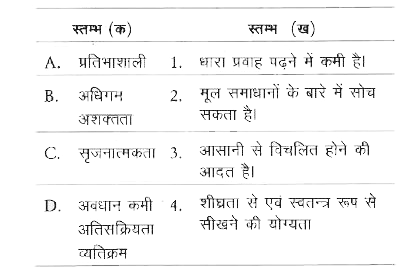 स्तम्भ (क) स्तम्भ (ख)
A. प्रतिभाशाली 1. धारा प्रवाह पढ़ने में कमी है।
B. अधिगम 2. मूल समाधानों के बारे में सोच
अशक्तता सकता है।
C. सृजनात्मकता 3. आसानी से विचलित होने की
आदत है।
D. अवधान कमी 4. शीघ्रता से एवं स्वतन्त्र रूप से
अतिसक्रियता सीखने की योग्यता
व्यतिक्रम